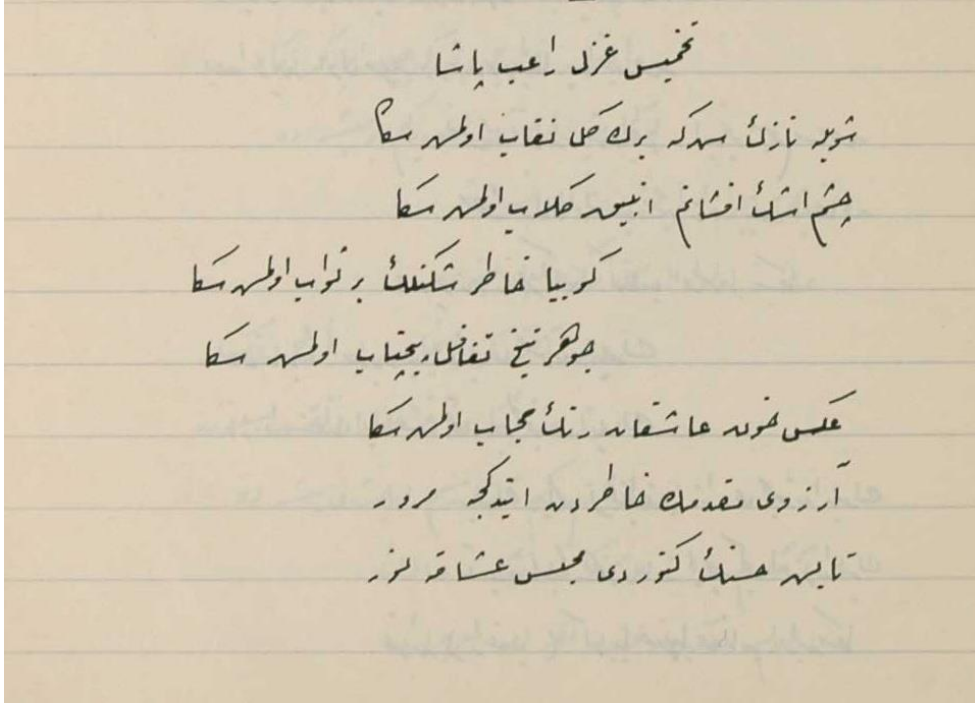 تخميس غزل راغب پاشا
شويله نازك سن كه برك گل نقاب اولمش سكا
چشم اشك افشانم انبيق گلاب اولمش سكا
گوييا خاطر شكنلك بر ثواب اولمش سكا
جوهر تيغ تغافل پيچتاب اولمش سكا
عكس خون عاشقان رنگ حجاب اولمش سكا
آرزوى مقدمك خاطردن ايتدكجه مرور
تابش حسنك كتوردى مجلس عشاقه نور